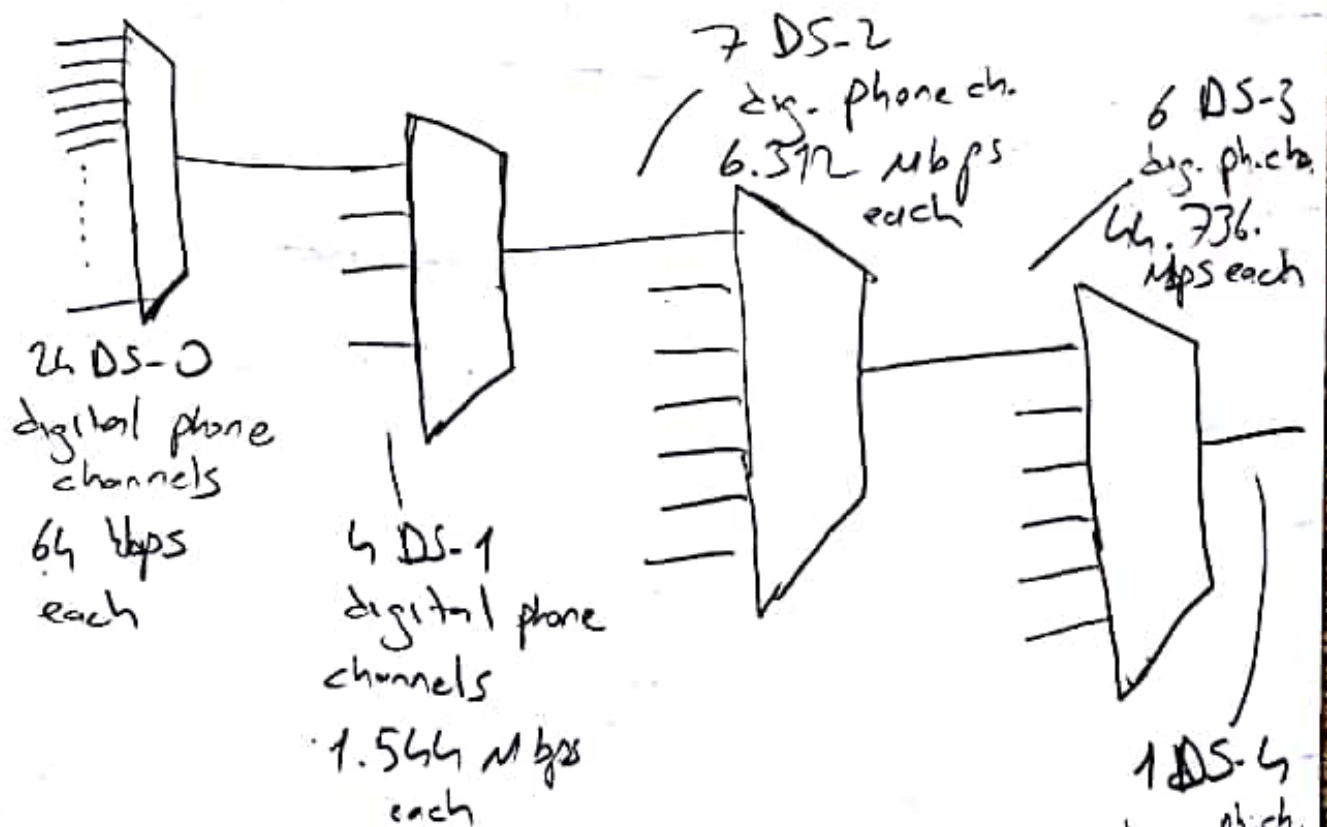 24 DS-0
digital phone
channels
64 kbps
each
4 DS-1
digital phone
channels
1.544 Mbps
each
7 DS-2
dig. phone ch.
6.312 Mbps
each
6 DS-3
dig. ph.ch.
44.736.
Mps each
1 DS-4
ph.ch.